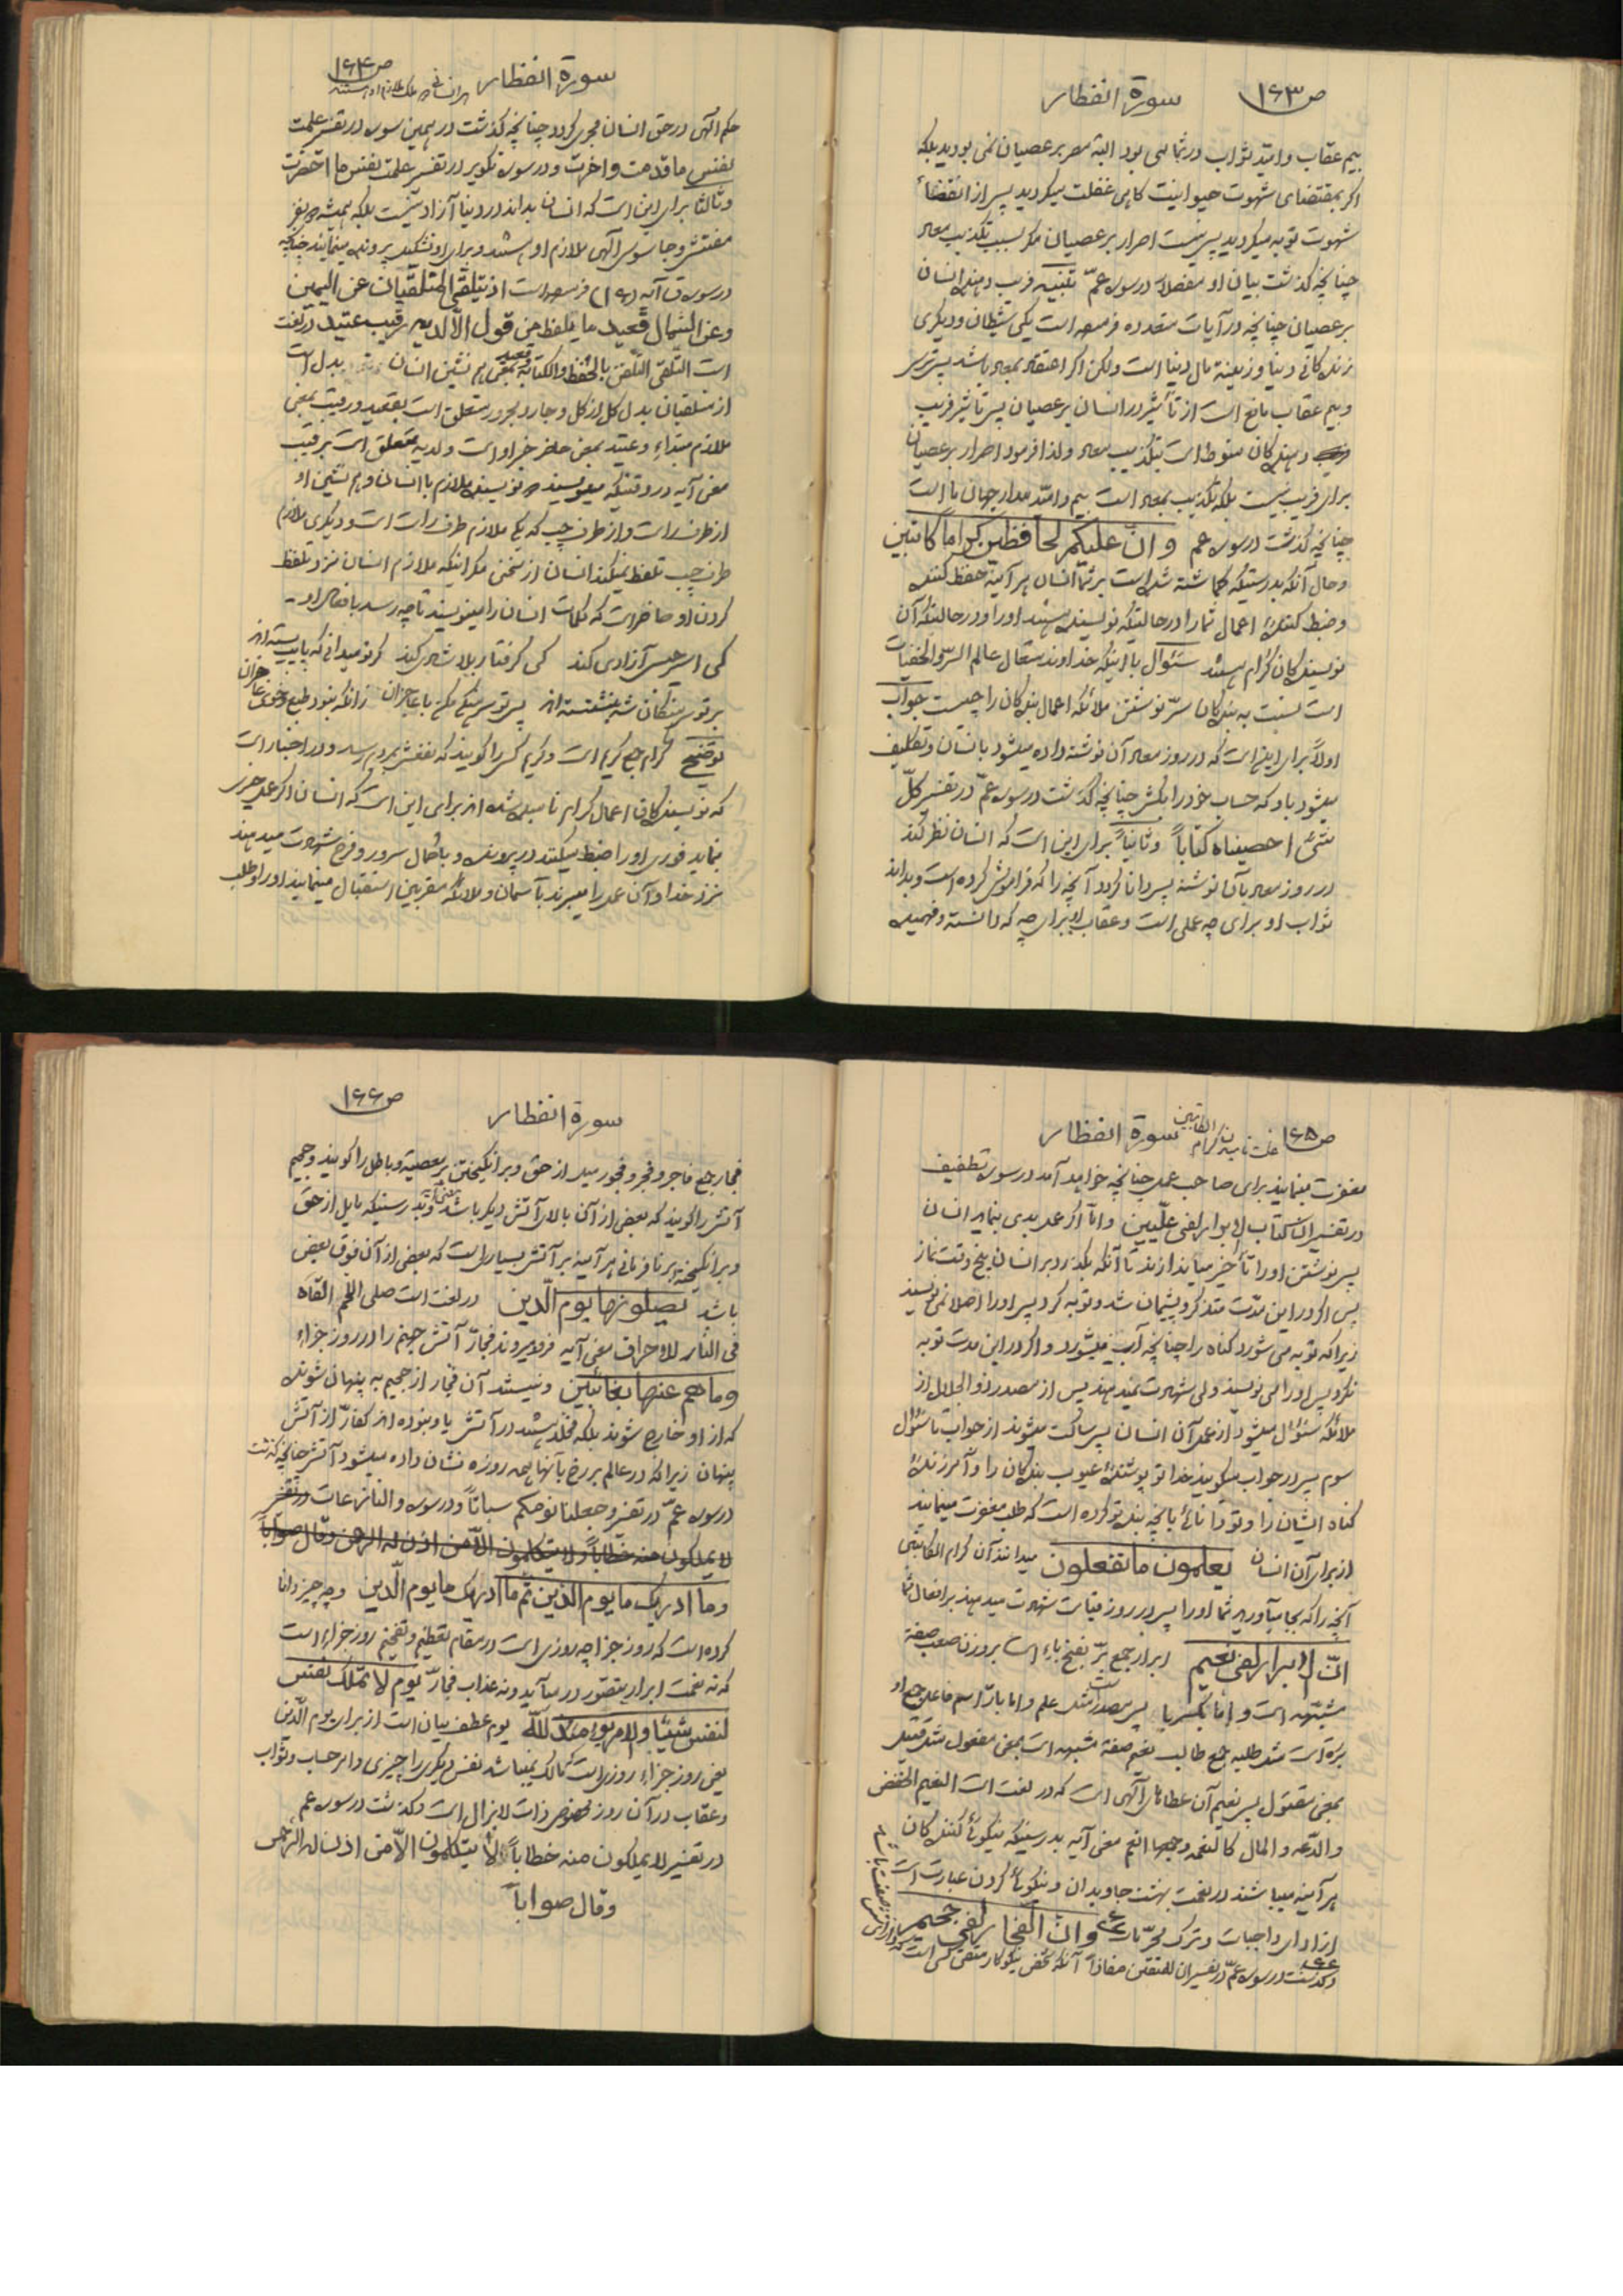 ص۱۶۳ سورة انفطار
بیم عقاب و امید ثواب در شما می بود البته مصر بر عصیان نمی بودید بلکه
اگر بمقتضای شهوت حیوانیت کاهی غفلت میکردید پس از انقضاء
شهوت توبه میکردید پس نیست اصرار بر عصیان مگر بسبب تکذیب معاد
چنانچه گذشت بیان او مفصلا در سوره عمّ تنبیه فریب دهنده انسان
بر عصیان چنانچه در آیات متعدده فرموده است یکی شیطان و دیگری
زندگانی دنیا و زینت مال دنیا است ولکن اگر اعتقاد بمعاد باشد پس ترس
و بیم عقاب مانع است از تأثیر در انسان بر عصیان پس تاثیر فریب
دهندگان منوط است بتکذیب معاد ولذا فرمود اصرار بر عصیان
برای فریب نیست بلکه تکذیب بمعاد است بیم و امید مدار جهان ما است
چنانچه گذشت در سوره عم و انّ علیکم لحافظین کراما کاتبین
و حال آنکه بدرستیکه گماشته شده است بر شما انسان هر آینه حفظ کننده
و ضبط کنندۀ اعمال شما را در حالتیکه نویسنده هستند او را و در حالتیکه آن
نویسندگان کرام هستند سئوال با اینکه خداوند متعال عالم السرّ و الخفیات
است نسبت به بندگان سرّ نوشتن ملائکه اعمال بندگان را چیست جواب
اولاً برای اینست که در روز معاد آن نوشته داده میشود بانسان و تکلیف
میشود باو که حساب خود را بکش چنانچه گذشت در سوره عمّ در تفسیر کلّ
شئ احصیناه کتاباً و ثانیاً برای این است که انسان نظر کند
در روز معاد بآن نوشته پس دانا گردد آنچه را که فراموش کرده است و بداند
ثواب او برای چه عملی است و عقاب او برای چه که دانسته و فهمیده
سورة انفطار ص۱۶۴
حکم الهی در حق انسان مجری گردد چنانچه گذشت در همین سوره در تفسیر علمت
نفس ما قدمت و اخرت و در سوره تکویر در تفسیر علمت نفس ما احضرت
و ثالثا برای این است که انسان بداند در دنیا آزاد نیست بلکه همیشه دو نفر
مفتش و جاسوس الهی ملازم او هستند و برای او تشکیل پرونده مینمایند چنانچه
در سوره ق آیه (۱۶) فرموده است اذ یتلقی المتلقیان عن الیمین
و عن الشمال قعید ما یلفظ من قول الّا لدیه رقیب عتید در لغت
است التّلقی التّلقن بالحفظ و الکتابة قعید بمعنی هم نشین انسان بدل است
از متلقیان بدل کل از کل و جار و مجرور متعلق است بقعید و رقیب بمعنی
ملازم مبتداء و عتید بمعنی حاضر خبر او است و لدیه متعلق است برقیب
معنی آیه در وقتیکه مینویسند دو نویسنده ملازم با انسان و هم نشین او
از طرف راست و از طرف چپ که یکی ملازم طرف راست است و دیگری ملازم
طرف چپ تلفظ نمیکند انسان از سخنی مگر اینکه ملازم انسان نزد تلفظ
کردن او حاضر است که کلمات انسان را مینویسند تا چه رسد بافعال او
کی اسیر حبس آزادی کند کی گرفتار بلا شادی کند گر تو میدانی که پایت بسته اند
بر تو سرهنگان شه بنشسته اند پس تو سرهنگی مکن با عاجزان زانکه نبود طبع و خوی عاجز آن
توضیح کرام جمع کریم است و کریم کسی را گویند که نفعش بمردم رسد و در اخبار است
که نویسندگان اعمال کرام نامیده شده اند برای این است که انسان اگر عمل خیری
نماید فوری او را ضبط میکنند در پرونده و با کمال سرور و فرح شهادت میدهند
نزد خدا و آن عمل را میبرند بآسمان و ملائکه مقربین استقبال مینمایند او را و طلب
ص۱۶۵ علت نامیدن کرام الکاتبین سورة انفطار
مغفرت مینمایند برای صاحب عمل چنانچه خواهد آمد در سوره تطفیف
در تفسیر ان کتاب الابرار لفی علّیین و امّا اگر عمل بدی بنماید انسان
پس نوشتن او را تأخیر میاندازند تا آنکه بگذرد بر انسان پنج وقت نماز
پس اگر در این مدّت متذکر و پشیمان شد و توبه کرد پس او را اصلا نمی نویسند
زیرا که توبه می شورد گناه را چنانچه آب میشورد و اگر در این مدت توبه
نکرد پس او را می نویسند ولی شهادت نمیدهند پس از مصدر ذو الجلال از
ملائکه سئوال میشود از عمل آن انسان پس ساکت میشوند از جواب تا سئوال
سوم پس در جواب میگویند خدا تو پوشندۀ عیوب بندگان را و آمرزندۀ
گناه ایشان را و تو دانائی بانچه بنده تو کرده است که طلب مغفرت مینمایند
از برای آن انسان یعلمون ما تفعلون میدانند آن کرام الکاتبین
آنچه را که بجا میآورید شما او را پس در روز قیامت شهادت میدهند بر افعال شما
انّ الابرار لفی نعیم ابرار جمع برّ بفتح باء است بر وزن صعب صفة
مشبّهه است و امّا بکسر با پس مصدر است مثل علم و اما بارّ اسم فاعل جمع او
بررة است مثل طلبه جمع طالب نعیم صفة مشبهه است بمعنی مفعول مثل قتیل
بمعنی مقتول پس نعیم آن عطاهای الهی است که در لغت است النعیم الخفض
و الدّعه و المال کالنعمه و جمعها انعم معنی آیه بدرستیکه نیکوئی کنندگان
هر آینه میباشند در نعمت بهشت جاویدان و نیکوئی کردن عبارت است
از ادای واجبات و ترک محرّمات و انّ الفجار لفی جحیم
و گذشت در سوره عمّ در تفسیر ان للمتقین مفازاً آنکه شخص نیکوکار متقی کسی است که
سورة انفطار ص۱۶۶
فجار جمع فاجر و فجر و فجور میل از حق و برانگیختن بر معصیة و باطل را گویند و جحیم
آتش را گویند که بعضی از آن بالای آتش دیگر باشد معنی آیه و بدرستیکه مایل از حق
و برانگیخته بر نافرمانی هر آینه بر آتش بسیار است که بعضی از آن فوق بعض
باشد یصلونها یوم الّدین در لغت است صلی اللحم القاه
فی النّار للاحراق معنی آیه فرو میروند فجّار آتش جهنم را در روز جزاء
و ما هم عنها بغائبین و نیستند آن فجار از جحیم به پنهان شونده
که از او خارج شوند بلکه مخلّد هستند در آتش یا و نبوده اند کفّار از آتش
پنهان زیرا که در عالم برزخ بآنها همه روزه نشان داده میشود آتش چنانچه گذشت
در سوره عمّ در تفسیر و جعلنا نومکم سباتاً و در سوره و النازعات در تفسیر
لا یملکون منه خطاباً و لا یتکلمون الّا من اذن له الرحمن و قال صواباً
و ما ادریک ما یوم الدّین ثمّ ما ادریک ما یوم الّدین و چه چیز دانا
کرده است که روز جزا چه روزی است در مقام تعظیم و تفخیم روز جزاء است
که نه نعمت ابرار بتصوّر در میآید و نه عذاب فجّار یوم لا تملک نفس
لنفس شیئا و الامر یومئذ للّه یوم عطف بیان است از برای یوم الّدین
یعنی روز جزاء روزیست که مالک نمیباشد نفس دیگری را چیزی و امر حساب و ثواب
و عقاب در آن روز مخصوص ذات لا یزال است و گذشت در سوره عم
در تفسیر لا یملکون منه خطاباً لا یتکلمون الّا من اذن له الرّحمن
و قال صواباً